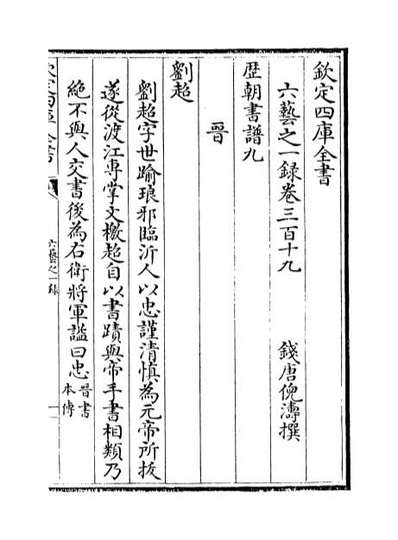 欽定四庫全書
六藝之一録卷三百十九
錢唐倪濤撰
歴朝書譜九
晉
劉超
劉超字世踰琅邪臨沂人以忠謹清慎為元帝所拔
遂從渡江專掌文檄超自以書蹟與帝手書相類乃
絶不與人交書後為右衛將軍謚曰忠晉書本傳
六藝之一録